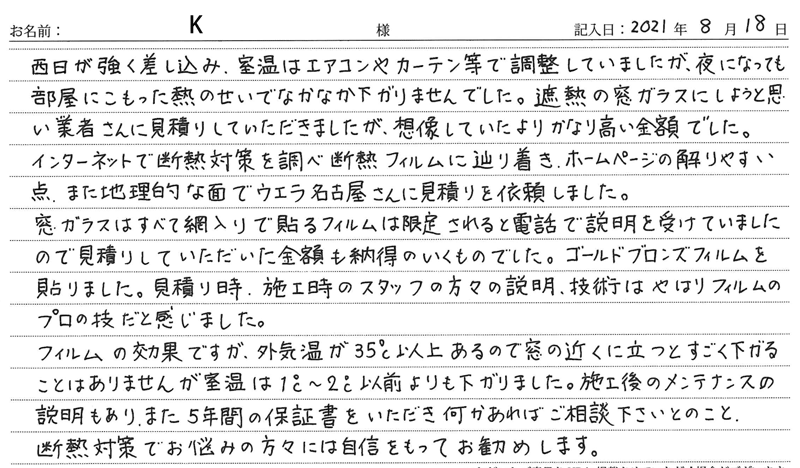 お名前： K 様 記入日：2021 年 8 月 18 日
西日が強く差し込み、室温はエアコンやカーテン等で調整していましたが、夜になっても
部屋にこもった熱のせいでなかなか下がりませんでした。遮熱の窓ガラスにしようと思
い業者さんに見積りしていただきましたが、想像していたよりかなり高い金額でした。
インターネットで断熱対策を調べ断熱フィルムに辿り着き、ホームページの解りやすい
点、また地理的な面でウエラ名古屋さんに見積りを依頼しました。
窓ガラスはすべて網入りで貼るフィルムは限定されると電話で説明を受けていました
ので見積りしていただいた金額も納得のいくものでした。ゴールドブロンズフィルムを
貼りました。見積り時、施工時のスタッフの方々の説明、技術はやはりフィルムの
プロの技だと感じました。
フィルムの効果ですが、外気温が35℃以上あるので窓の近くに立つとすごく下がる
ことはありませんが室温は1℃～2℃以前よりも下がりました。施工後のメンテナンスの
説明もあり、また5年間の保証書をいただき何かあればご相談下さいとのこと、
断熱対策でお悩みの方々には自信をもってお勧めします。